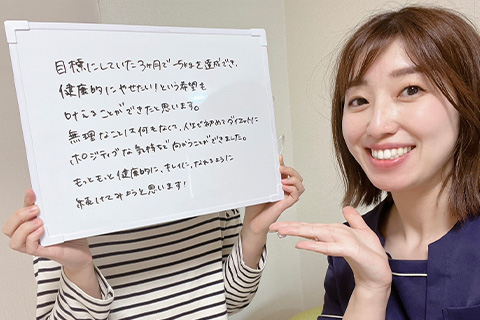 目標にしていた3ヶ月で-5kgを達成でき、
健康的にやせたい!という希望も
叶えることができたと思います。
無理なことは何もなくて、人生で初めてダイエットに
ポジティブな気持ちで向かうことができました。
もっともっと健康的に、キレイに、なれるように
続けてみようと思います!